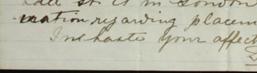 in London
mation regarding placem
In haste your affect